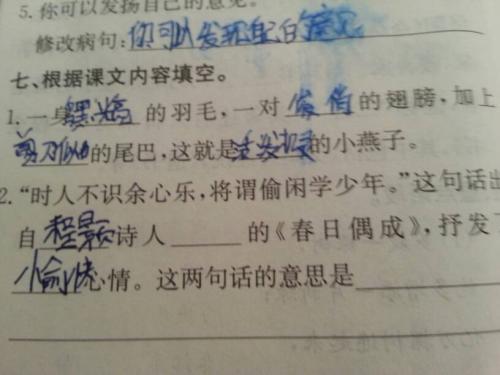 5.你可以发扬自己的意见。
修改病句:你可以发现自己的意见
七、根据课文内容填空。
1.一身黑的羽毛,一对俊俏的翅膀,加上
剪刀似的尾巴,这就是活泼机灵的小燕子。
2.“时人不识余心乐,将谓偷闲学少年。”这句话出
自程颢诗人______的《春日偶成》,抒发
愉悦心情。这两句话的意思是